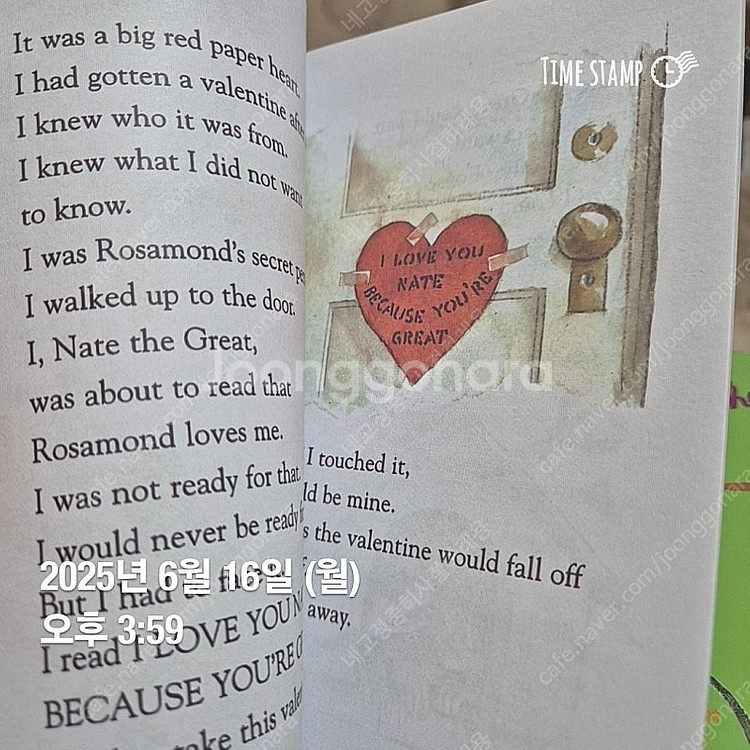 It was a big red paper heart.
I had gotten a valentine after
I knew who it was from.
I knew what I did not want
to know.
I was Rosamond's secret
I walked up to the door.
I, Nate the Great,
was about to read that
Rosamond loves me.
I was not ready for that.
I would never be ready
But I had
I read I LOVE YOU
BECAUSE YOU'RE
take this
TIME STAMP
I LOVE YOU
NATE
BECAUSE YOU'RE
GREAT
I touched it,
ld be mine.
s the valentine would fall off
away.
Joonggonara
2025년 6월 16일 (월)
오후 3:59
cafe.naver.com/joonggonara